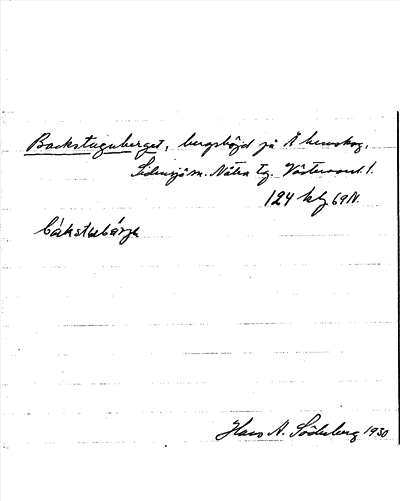 Backstuguberget, bergshöjd på Å hemskog,
Sidensjö sn. Nätra tg. Västernorrl. l.
124 klg 69 N.
båkstubärje
Hans A. Söderberg 1930